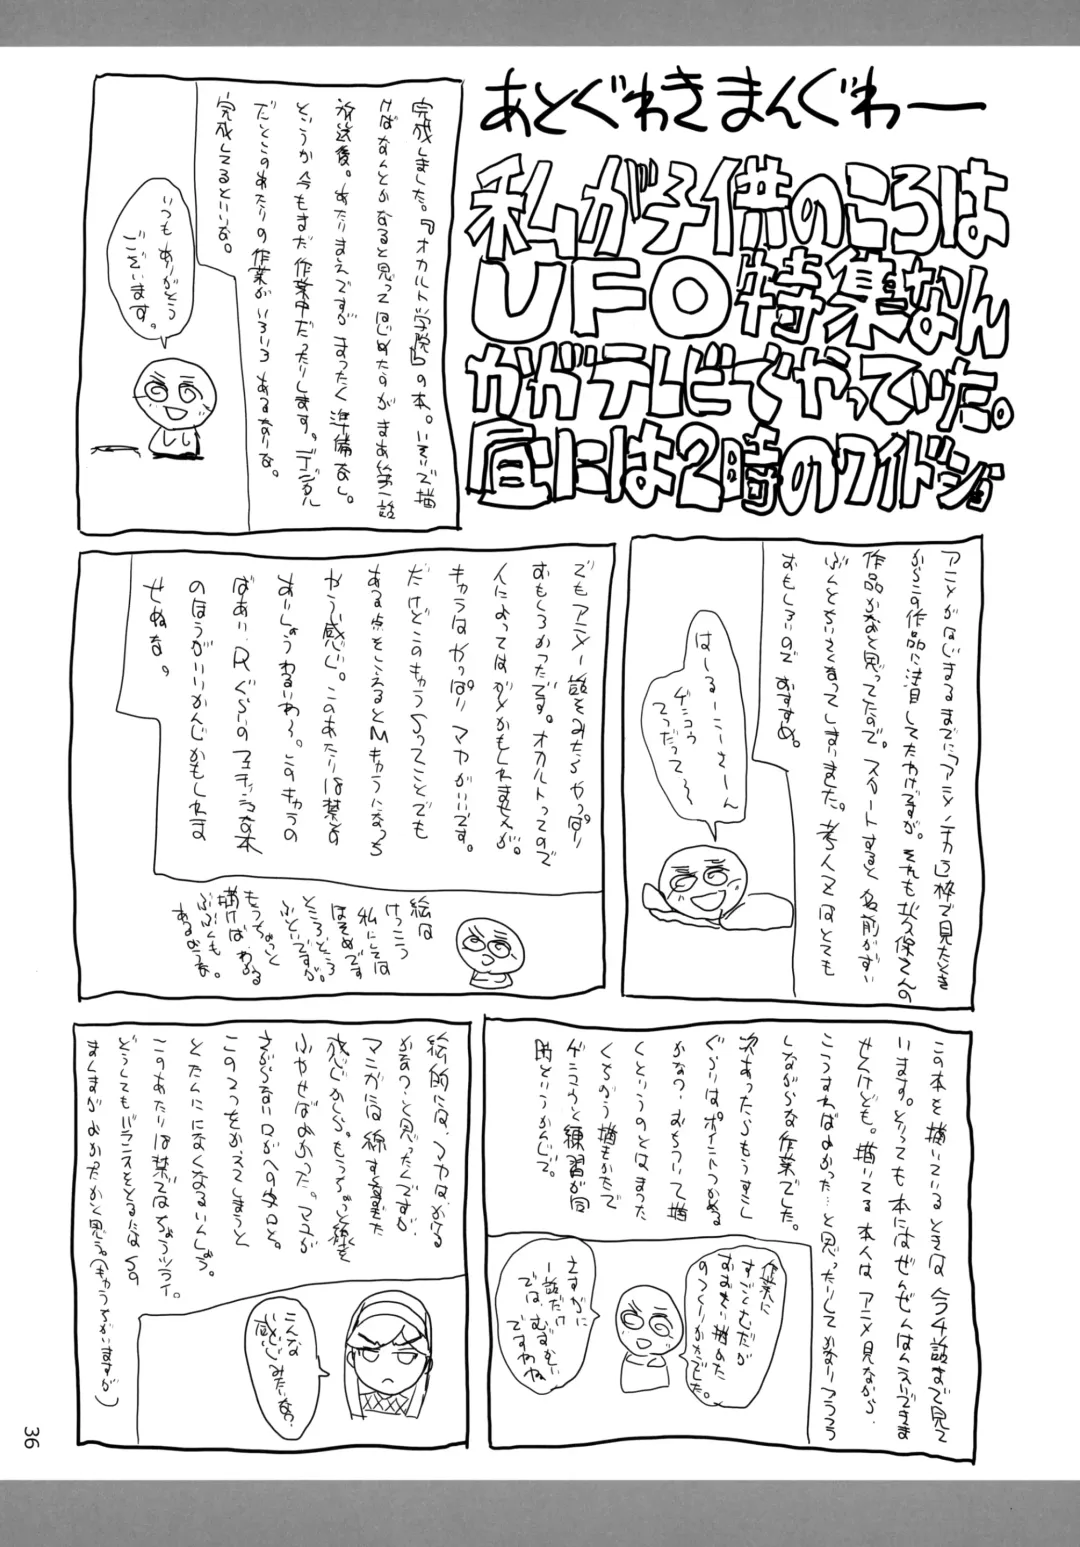 あとぐわきまんぐわー
私が子供のころは
UFO特集なん
かがテレビでやっていた。
昼には2時のワイドショ
完成しました。『オカルト学院』の本。いそいで描
けばなんとかなると思ってはじめたのがまあ第一話
放送後。あたりまえですがまったく準備なし。
というか今もまだ作業中だったりします。デジタル
だとこのあたりの作業がいろいろあるなりな。
完成してるといいな。
いつもありがとう
ございます。
アニメがはじまるまでに「アニメノチカラ」枠で見たとき
からこの作品に注目してたわけですが。それも
作品かなと思ってたので。スタートすると名前がずい
ぶんとちいさくなってしまいました。
おもしろいのでおすすめ。
はーるーこーさーん
てつだって〜
でもアニメ一話をみたらやっぱり
おもしろかったです。オカルトってので
人によってはダメかもしれませんが。
キャラはやっぱりマヤがいいです。
だけどこのキャラSってことでも
ある点をこえるとMキャラになっち
ゃう感じ。このあたりは禁との
あいしょうわるいわ〜。このキャラの
ばあい、Rぐらいのフェチッシュな本
のほうがいいかんじかもしれま
せぬな。
絵は
けっこう
私にしては
ほそめです
ところどころ
ふといですが。
もうちょっと
描けばわかる
ぶぶんも
あるかもな。
この本を描いているときは今4話まで見て
います。とっても本にはぜんぜんはんえいできま
せんけども。描いてる本人はアニメ見ながら、
こうすればよかった…と思ったりしてかなりアララララ
しながらな作業でした。
次あったらもうすこし
ぐらいはポイントつかめる
かなっ。おちついて描
くというのとはまった
くちがう描きかたで
ゲンコウと練習が同
時というかんじで。
作業に
すごくむだが
おおきい描めた
のつくりかたでした。
さすがに
一話だけ
では、むずかしい
ですわね
絵的には、マヤはかける
かなっ、と思ったんですが
マンガには線すくなすぎた
感じかしら。もうちょっと線を
ふやせばよかった。マユが
さがらない口がへの字口と。
この2つをかえてしまうと
とたんになくなるいんしょう。
このあたりは禁ではちょうツライ。
どうしてもバランスをとるにはSの
まんまがよかったかと思う。(キャラちがいますが)
こんな
感じみたいな?
36